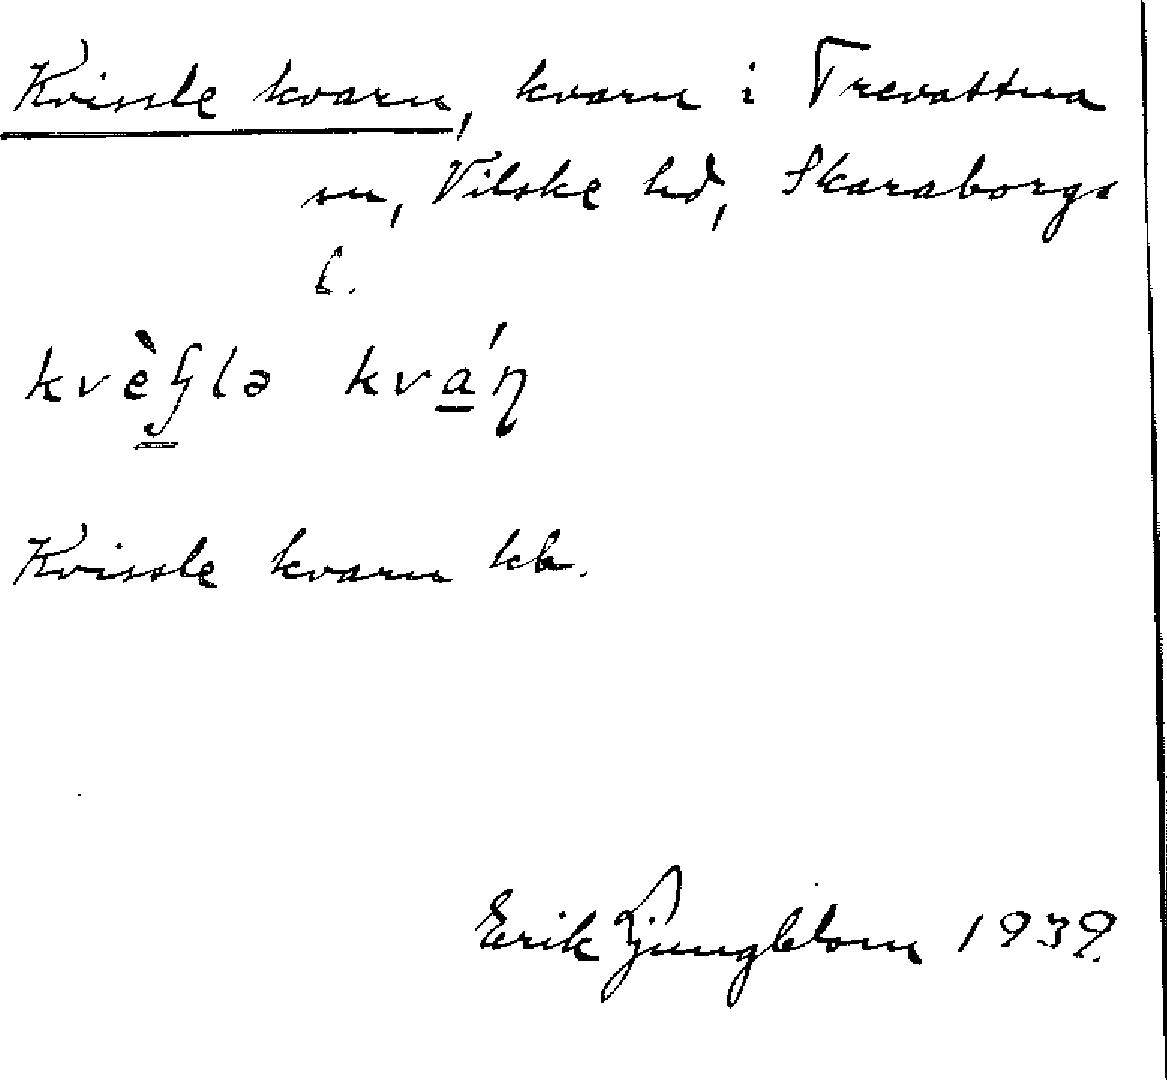 Kvissle kvarn, kvarn i Trevattna
sn, Vilske hd, Skaraborgs
l.
kvɛ̀ʂlə kváɳ
Kvissle kvarn kb.
Erik Ljungblom 1939.